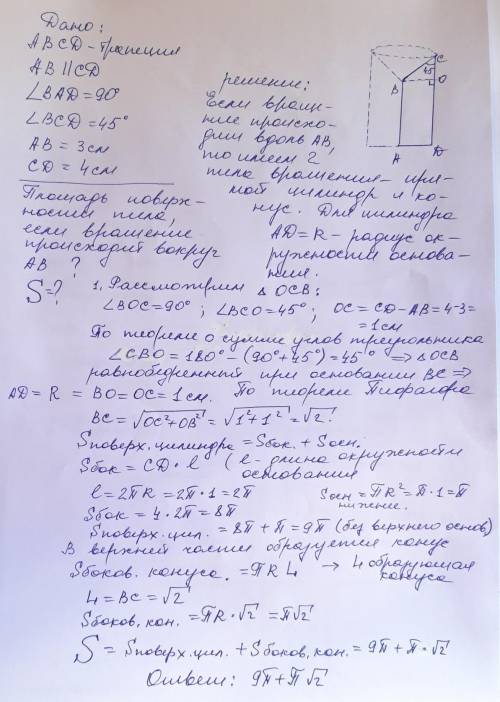 Дано:
ABCD - трапеция
AB || CD
∠BAD = 90°
∠BCD = 45°
AB = 3 см
CD = 4 см
Площадь поверх-
ности тела,
если вращение
происходит вокруг
AB ?
S = ?
решение:
Если враще-
ние происхо-
дит вдоль AB,
то имеем 2
тела вращения - пря-
мой цилиндр и ко-
нус. Для цилиндра
AD = R - радиус ок-
ружности основа-
ния.
C
45
B
O
A
D
1. Рассмотрим Δ OCB:
∠BOC = 90° ; ∠BCO = 45° ; OC = CD - AB = 4-3=
= 1 см
По теореме о сумме углов треугольника
∠CBO = 180° - (90° + 45°) = 45° ⇒ Δ OCB
равнобедренный при основании BC ⇒
AD = R = BO = OC = 1 см. По теореме Пифагора
BC = √OC² + OB² = √1² + 1² = √2.
Sповерх. цилиндра = Sбок. + Sосн.
Sбок = CD · l (l - длина окружности
основания
l = 2πR = 2π · 1 = 2π
Sосн = πR² = π · 1 = π
нижнее.
Sбок = 4 · 2π = 8π
Sповерх. цил. = 8π + π = 9π (без верхнего основ)
В верхней части образуется конус
Sбоков. конуса. = πR L → L образующая
конуса
L = BC = √2
Sбоков. кон. = πR · √2 = π√2
S = Sповерх. цил. + Sбоков. кон. = 9π + π · √2
Ответ: 9π + π√2